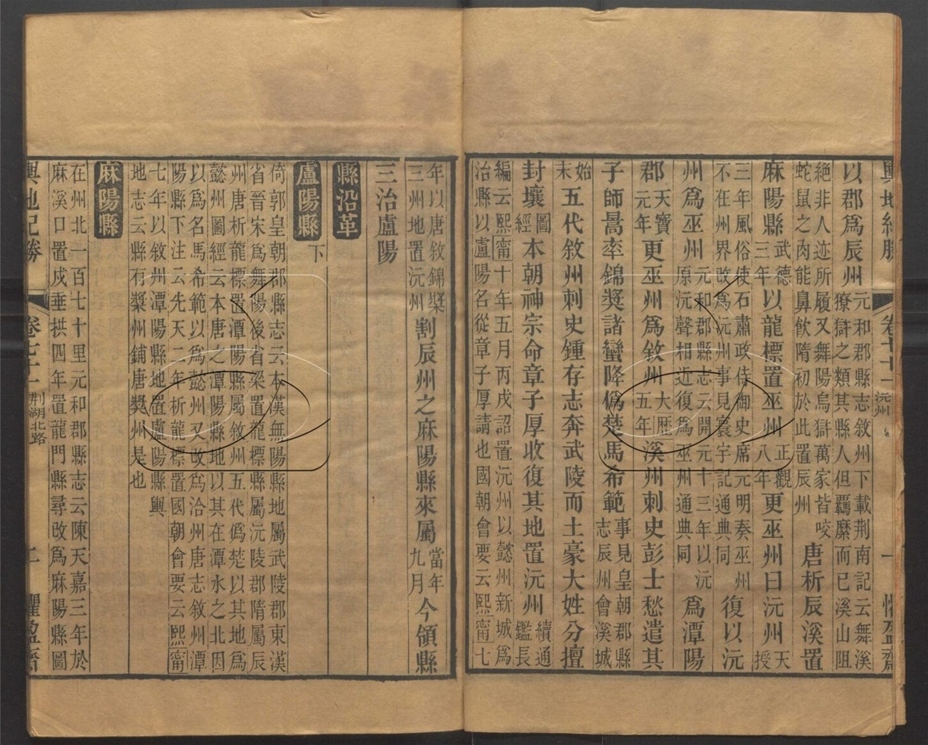 輿地紀勝
卷七十一
沅州
一
懼盈齋
以郡爲辰州元和郡縣志敘州下載荆南記云舞溪
獠獄之類其縣人但羈縻而已溪山阻
絕非人迹所履又舞陽烏獄萬家皆咬
蛇鼠之肉能鼻飲隋初於此置辰州
唐析辰溪置
麻陽縣武德三年以龍標置巫州正觀八年更巫州曰沅州天授
三年風俗使石肅政侍御史席元明奏巫州
不在州界改爲沅州事見寰宇記通典同
復以沅
州爲巫州元和郡縣志云開元十三年以沅
原沅聲相近復爲巫州通典同
爲潭陽
郡天寶元年更巫州爲敘州大厯五年溪州刺史彭士愁遣其
子師暠率錦奬諸蠻降僞楚馬希範事見皇朝郡縣
志辰州會溪城
始末五代敘州刺史鍾存志奔武陵而土豪大姓分擅
封壤圖經本朝神宗命章子厚收復其地置沅州續通
鑑長
編云熙甯十年五月丙戌詔置沅州以懿州新城爲
治縣以盧陽名從章子厚請也國朝會要云熙甯七
年以唐敘錦奬
三州地置沅州
割辰州之麻陽縣來屬當年
九月
今領縣
三治盧陽
縣沿革
盧陽縣 下
倚郭皇朝郡縣志云本漢無陽縣地屬武陵郡東漢
省晉宋爲舞陽後省梁置龍標縣屬沅陵郡隋屬辰
州唐析龍標置潭陽縣屬敘州五代僞楚以其地爲
懿州圖經云本唐之潭陽縣地以其在潭水之北因
以爲名馬希範以爲懿州又改爲洽州唐志敘州潭
陽縣下注云先天二年析龍標置國朝會要云熙甯
七年以敘州潭陽縣地置盧陽縣輿
地志云縣有奬州鋪唐奬州是也
麻陽縣
在州北一百七十里元和郡縣志云陳天嘉三年於
麻溪口置戍垂拱四年置龍門縣尋改爲麻陽縣圖
輿地紀勝
卷七十一
荆湖北路
二
懼盈齋